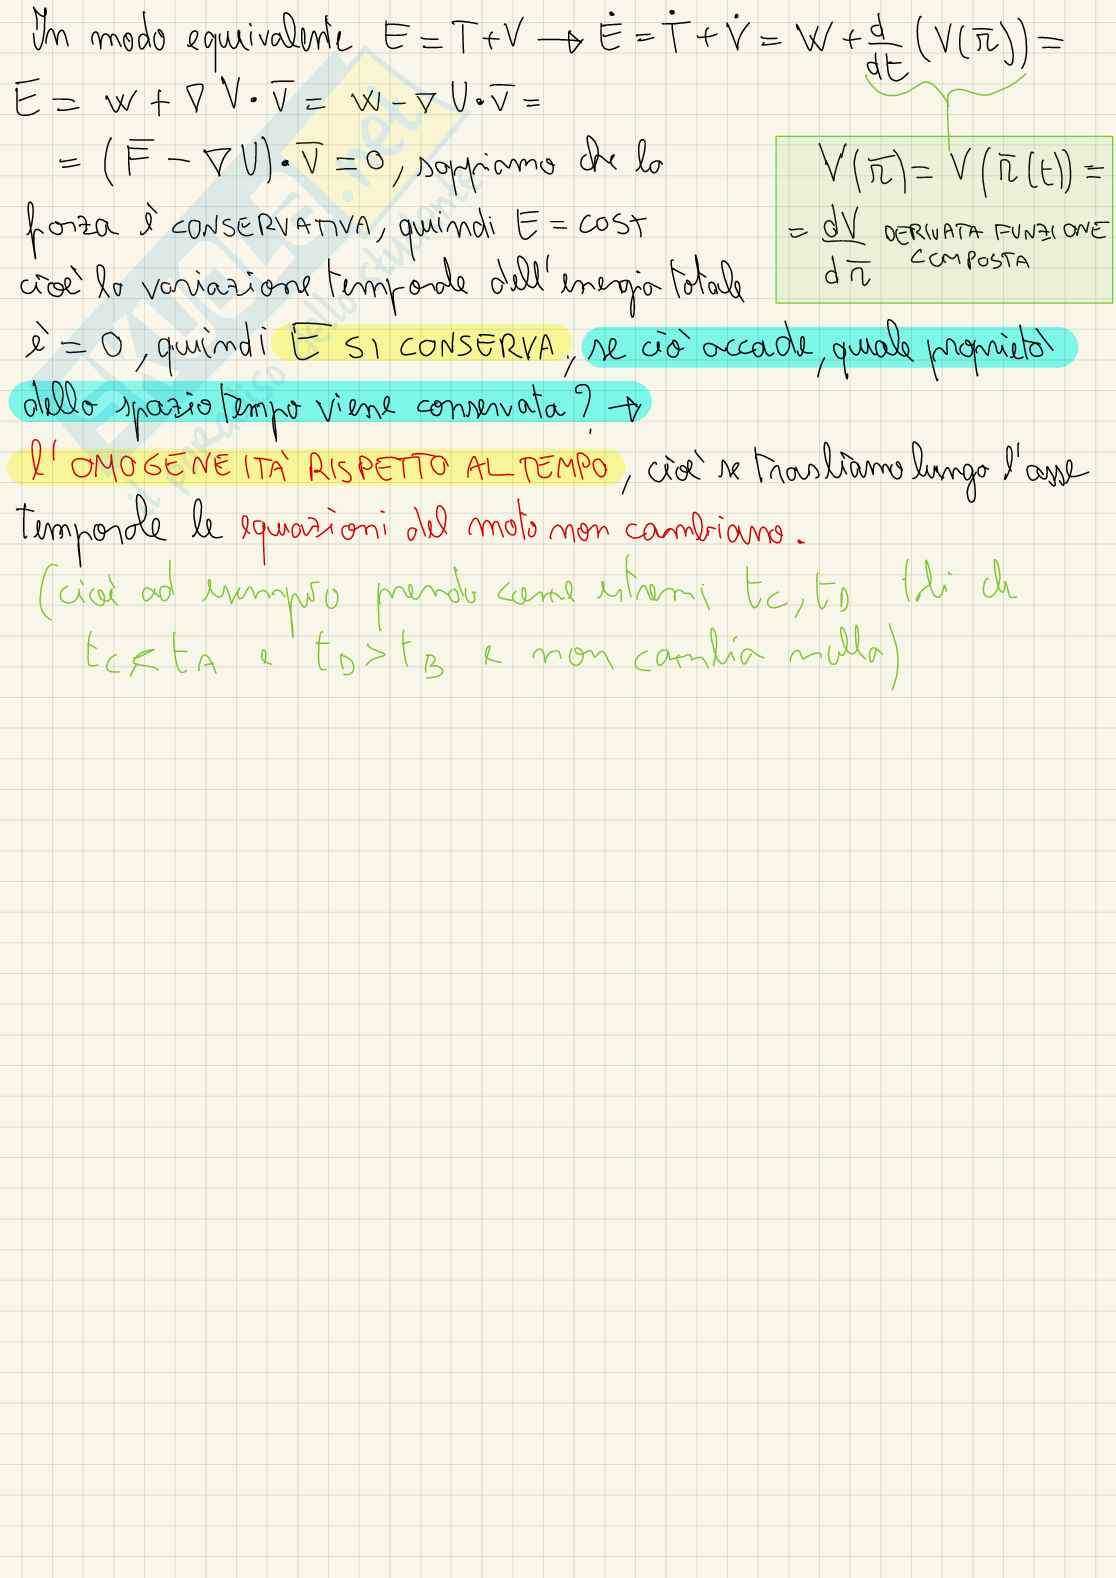 In modo equivalente E = T + V → Ė = Ṫ + V̇ = W + d/dt (V(r̅)) =
E = W + ∇V · v̅ = W - ∇U · v̅ =
= (F̅ - ∇U) · v̅ = 0, sappiamo che la
forza è CONSERVATIVA, quindi E = COST
cioè la variazione temporale dell'energia totale
è = 0, quindi E SI CONSERVA, se ciò accade, quale proprietà
dello spazio/tempo viene conservata? →
l'OMOGENEITÀ RISPETTO AL TEMPO, cioè se trasliamo lungo l'asse
temporale le equazioni del moto non cambiano.
(cioè ad esempio prendo come estremi tC, tD tali che
tC < tA e tD > tB e non cambia nulla)
V(r̅) = V(r̅(t)) =
= dV/dr̅ DERIVATA FUNZIONE
COMPOSTA
.net